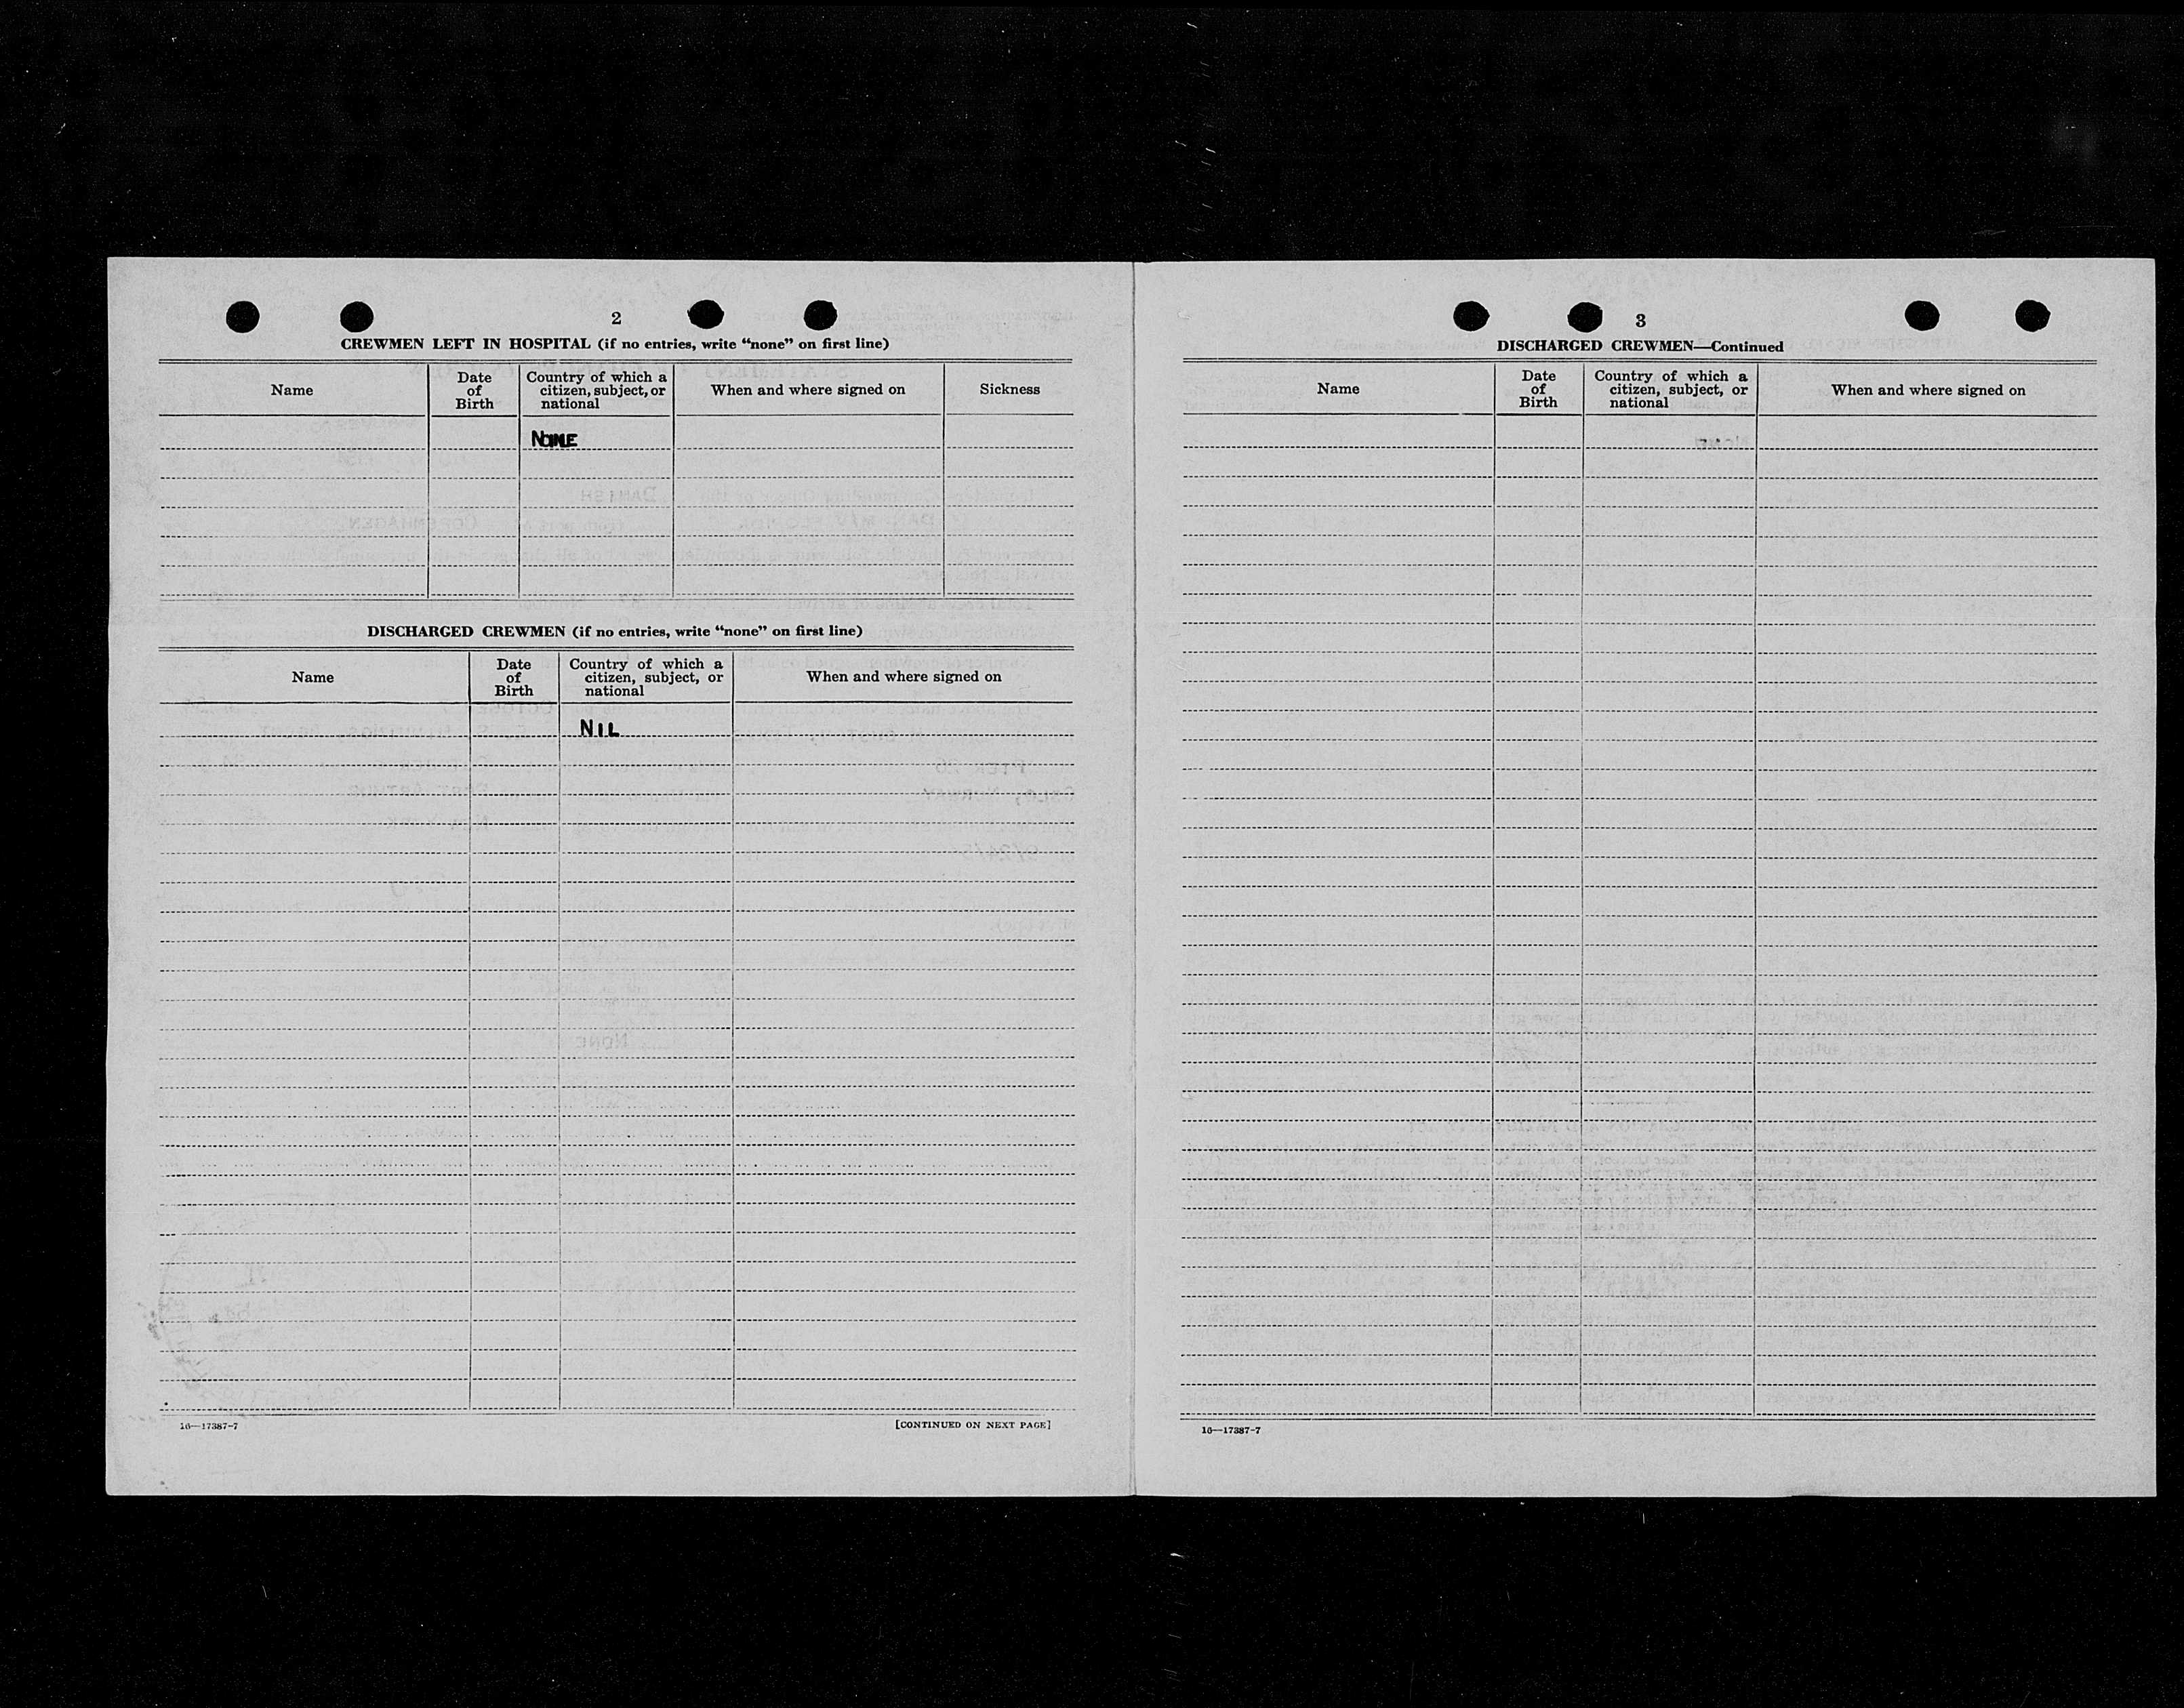 2
CREWMEN LEFT IN HOSPITAL (if no entries, write “none” on first line)
Name
Date of Birth
Country of which a citizen, subject, or national
When and where signed on
Sickness
NONE
DISCHARGED CREWMEN (if no entries, write “none” on first line)
Name
Date of Birth
Country of which a citizen, subject, or national
When and where signed on
NIL
16—17387-7
[CONTINUED ON NEXT PAGE]
3
DISCHARGED CREWMEN—Continued
Name
Date of Birth
Country of which a citizen, subject, or national
When and where signed on
16—17387-7